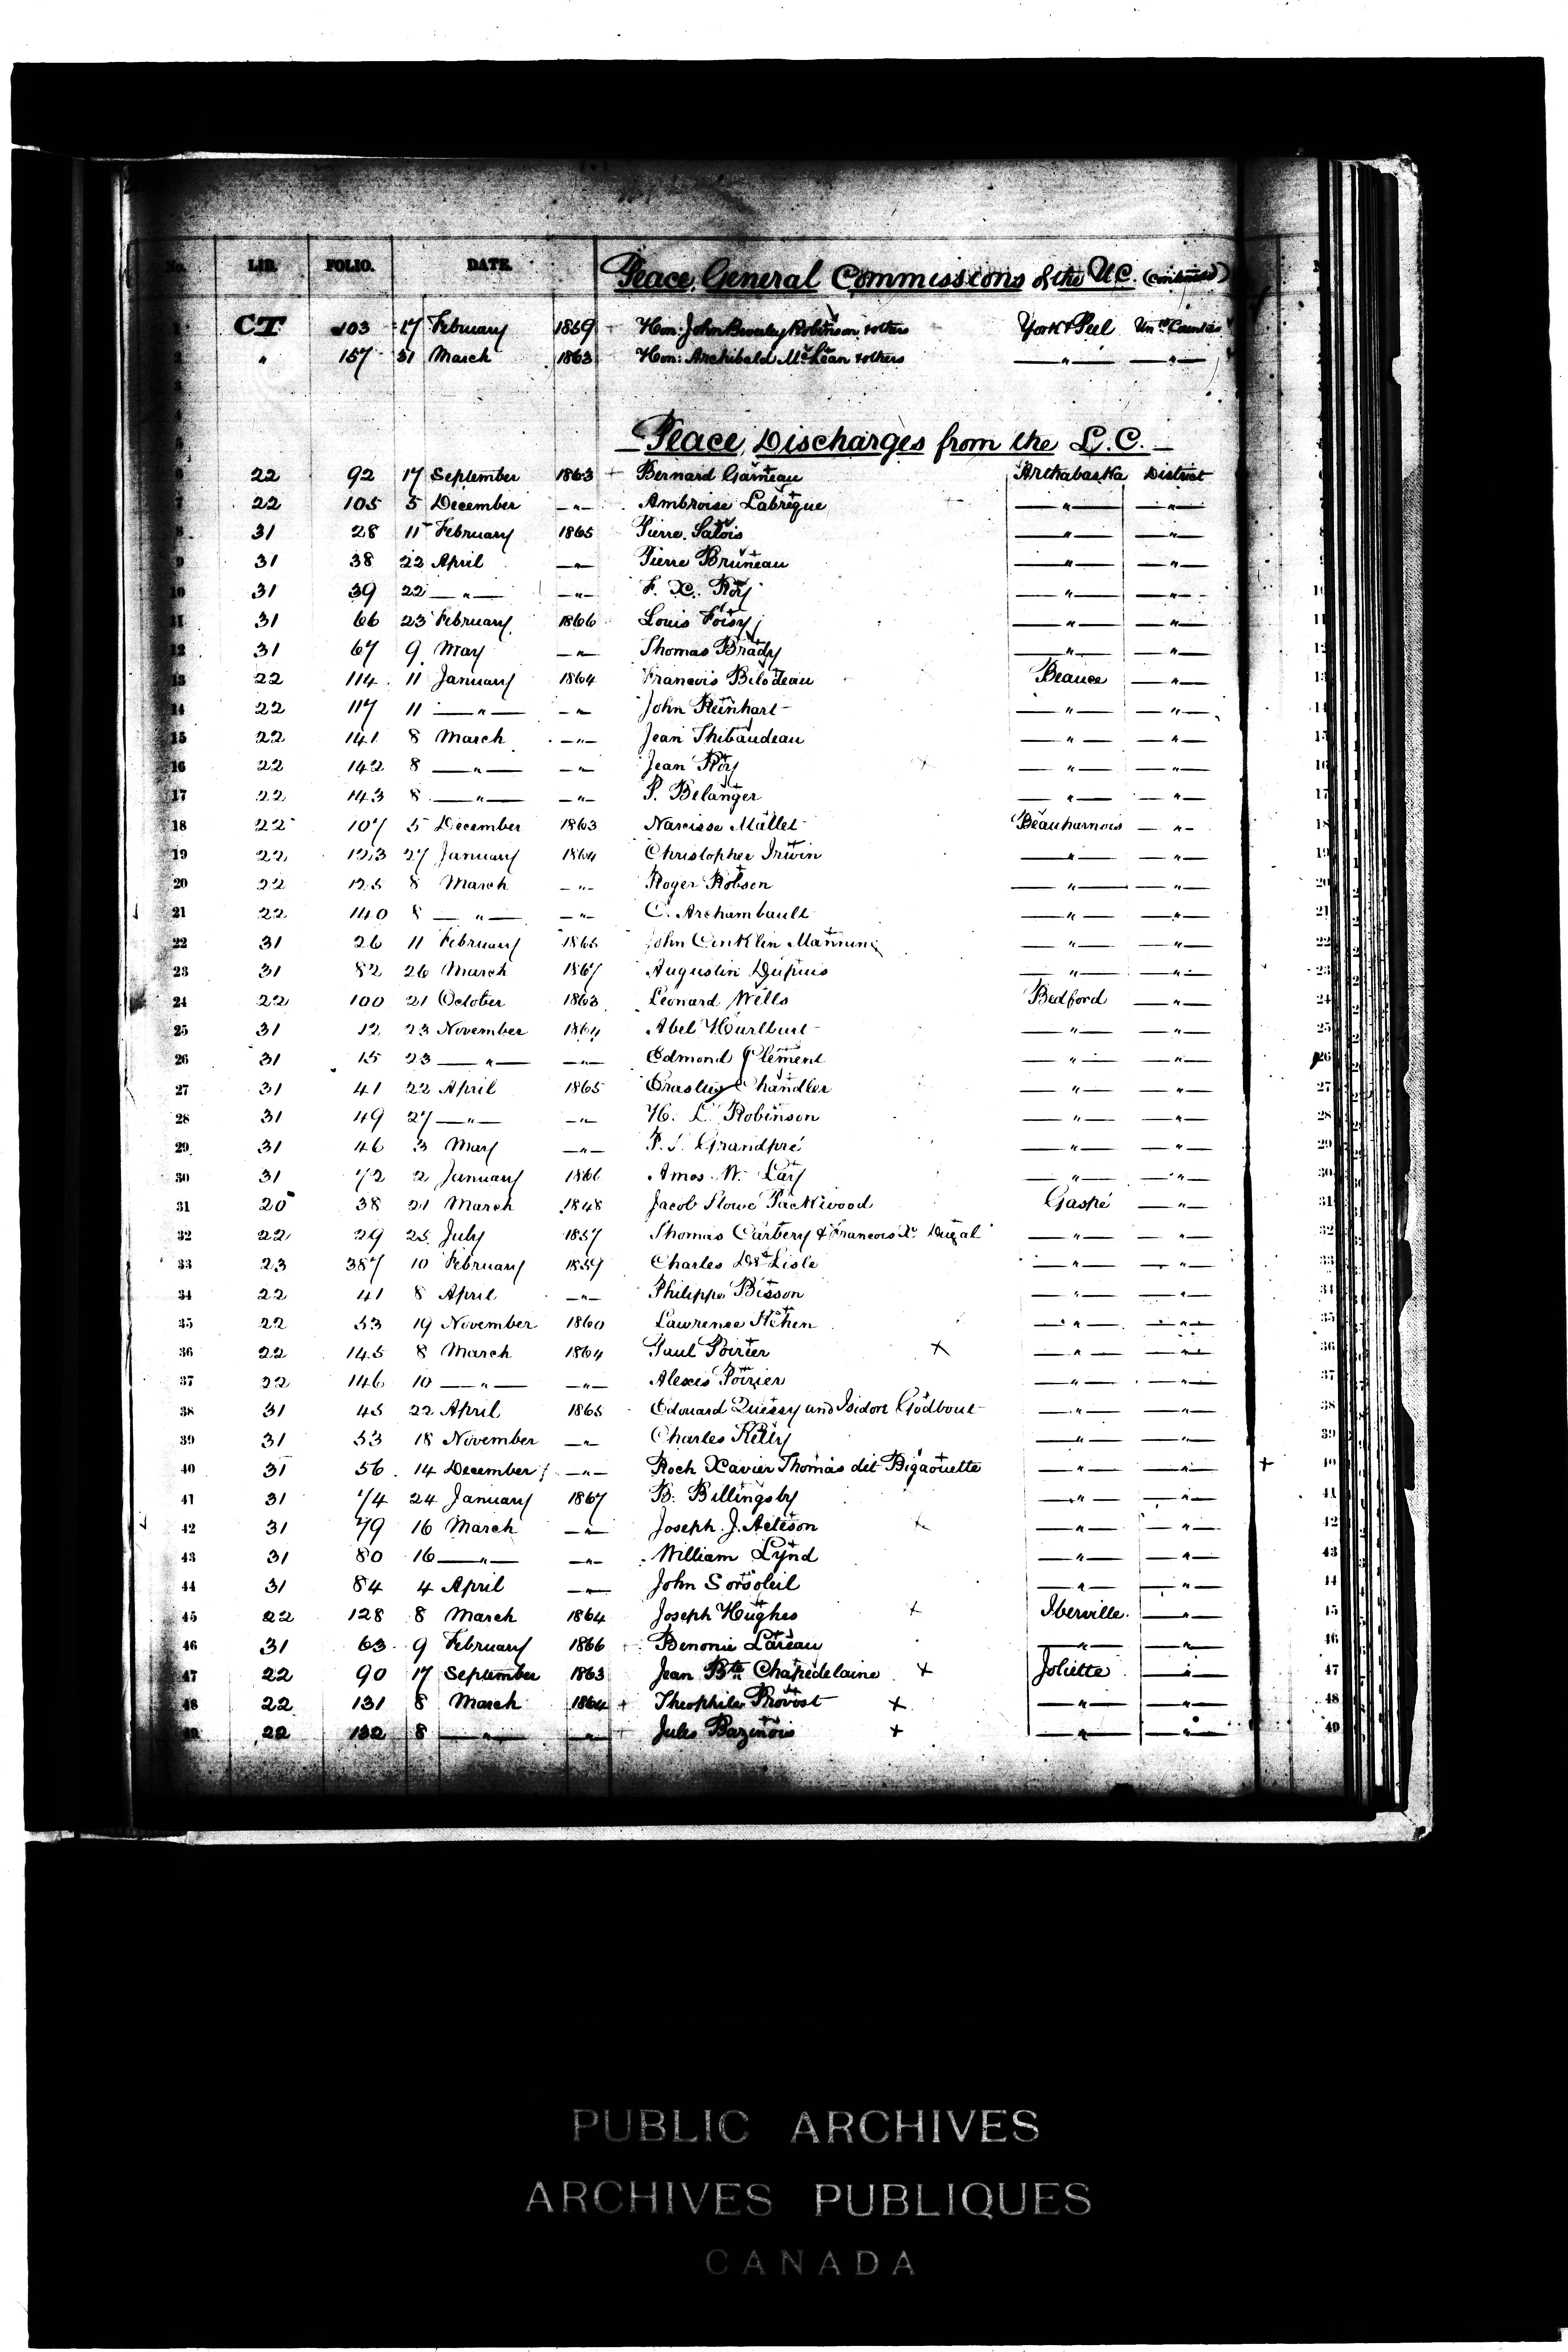 No. LIB. FOLIO. DATE. Peace, General Commissions of the U.C. (continued)
1 CT 103 17 February 1859 Hon: John Beverley Robinson & others York & Peel Un.d Counties
2 " 157 31 March 1863 Hon: Archibald McLean & others —"— —"—
3
4
5 Peace, Discharges from the L.C.
6 22 92 17 September 1863 + Bernard Garneau Arthabaska District 6
7 22 105 5 December —"— Ambroise Labreque —"— —"— 7
8 31 28 11 February 1865 Pierre Salois —"— —"— 8
9 31 38 22 April —"— Pierre Bruneau —"— —"— 9
10 31 39 22 —"— —"— F. X. Roy —"— —"— 10
11 31 66 23 February 1866 Louis Foisy —"— —"— 11
12 31 67 9 May —"— Thomas Brady —"— —"— 12
13 22 114 11 January 1864 Francois Bilodeau Beauce —"— 13
14 22 117 11 —"— —"— John Reinhart —"— —"— 14
15 22 141 8 March —"— Jean Thibaudeau —"— —"— 15
16 22 142 8 —"— —"— Jean Roy —"— —"— 16
17 22 143 8 —"— —"— P. Belanger —"— —"— 17
18 22 107 5 December 1863 Narcisse Mallet Beauharnois —"— 18
19 22 123 27 January 1864 Christopher Irwin —"— —"— 19
20 22 125 8 March —"— Roger Robson —"— —"— 20
21 22 140 8 —"— —"— C. Archambault —"— —"— 21
22 31 26 11 February 1865 John Conklin Manning —"— —"— 22
23 31 82 26 March 1867 Augustin Dupuis —"— —"— 23
24 22 100 21 October 1863 Leonard Wells Bedford —"— 24
25 31 12 23 November 1864 Abel Hurlburt —"— —"— 25
26 31 15 23 —"— —"— Edmond Clement —"— —"— 26
27 31 41 22 April 1865 Chandler —"— —"— 27
28 31 49 27 —"— —"— H. L. Robinson —"— —"— 28
29 31 46 3 May —"— Grandpré —"— —"— 29
30 31 72 2 January 1866 Amos W. Lay —"— —"— 30
31 20 38 21 March 1848 Jacob Stowe Packwood Gaspé —"— 31
32 22 29 25 July 1857 Thomas Carbery & Francois X. Dugal —"— —"— 32
33 23 387 10 February 1859 Charles De Lisle —"— —"— 33
34 22 41 8 April —"— Philippe Bisson —"— —"— 34
35 22 53 19 November 1860 Lawrence —"— —"— 35
36 22 145 8 March 1864 Paul Poirier + —"— —"— 36
37 22 146 10 —"— —"— Alexis Poirier —"— —"— 37
38 31 45 22 April 1865 Edouard Quessy and Isidore Godbout —"— —"— 38
39 31 53 18 November —"— Charles Kelly —"— —"— 39
40 31 56 14 December —"— Roch Xavier Thomas dit Bigaouette —"— —"— + 40
41 31 74 24 January 1867 B. Billingsby —"— —"— 41
42 31 79 16 March —"— Joseph J. Acteson + —"— —"— 42
43 31 80 16 —"— —"— William Lynd —"— —"— 43
44 31 84 4 April —"— John Sorsoleil —"— —"— 44
45 22 128 8 March 1864 Joseph Hughes + Iberville —"— 45
46 31 63 9 February 1866 Benonie Lareau —"— —"— 46
47 22 90 17 September 1863 Jean Bte. Chapedelaine + Joliette —"— 47
48 22 131 8 March 1864 + Theophile Provost + —"— —"— 48
49 22 132 8 —"— —"— + Jules Bazinois + —"— —"— 49
PUBLIC ARCHIVES
ARCHIVES PUBLIQUES
CANADA